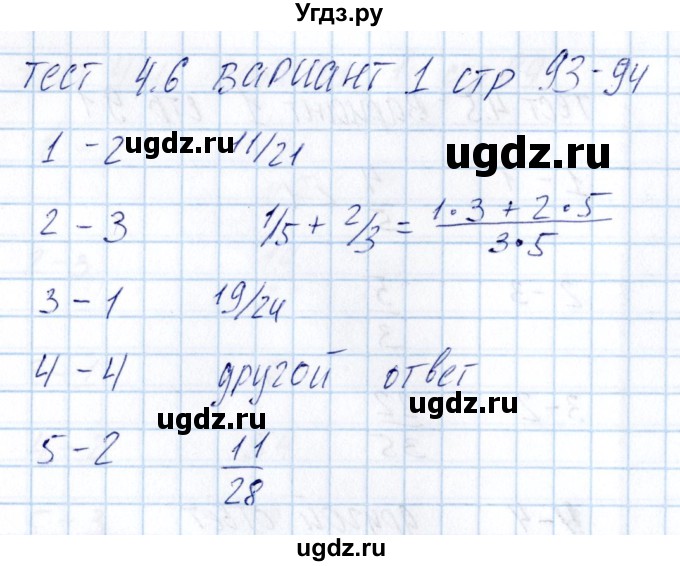 Угдз.ру
Тест 4.6 вариант 1 стр 93-94
1 - 2 11/21
2 - 3 1/5 + 2/3 = 1·3 + 2·5 / 3·5
3 - 1 19/24
4 - 4 другой ответ
5 - 2 11/28
ugdz.ru
ugdz.ru
ugdz.ru
ugdz.ru
ugdz.ru
ugdz.ru